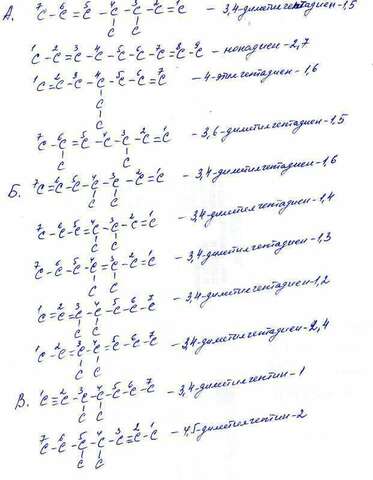 А. ⁷C - ⁶C = ⁵C - ⁴C - ³C - ²C = ¹C - 3,4-диметилгептадиен-1,5
C C
¹C - ²C = ³C - ⁴C - ⁵C - ⁶C - ⁷C = ⁸C - ⁹C - нонадиен-2,7
¹C = ²C - ³C - ⁴C - ⁵C - ⁶C = ⁷C - 4-этилгептадиен-1,6
C
C
⁷C - ⁶C = ⁵C - ⁴C - ³C - ²C = ¹C - 3,6-диметилгептадиен-1,5
C C
Б. ⁷C = ⁶C - ⁵C - ⁴C - ³C - ²C = ¹C - 3,4-диметилгептадиен-1,6
C C
⁷C - ⁶C - ⁵C = ⁴C - ³C - ²C = ¹C - 3,4-диметилгептадиен-1,4
C C
⁷C - ⁶C - ⁵C - ⁴C = ³C - ²C = ¹C - 3,4-диметилгептадиен-1,3
C C
¹C = ²C = ³C - ⁴C - ⁵C - ⁶C - ⁷C - 3,4-диметилгептадиен-1,2
C C
¹C - ²C = ³C - ⁴C = ⁵C - ⁶C - ⁷C - 3,4-диметилгептадиен-2,4
C C
В. ¹C ≡ ²C - ³C - ⁴C - ⁵C - ⁶C - ⁷C - 3,4-диметилгептин-1
C C
⁷C - ⁶C - ⁵C - ⁴C - ³C ≡ ²C - ¹C - 4,5-диметилгептин-2
C C